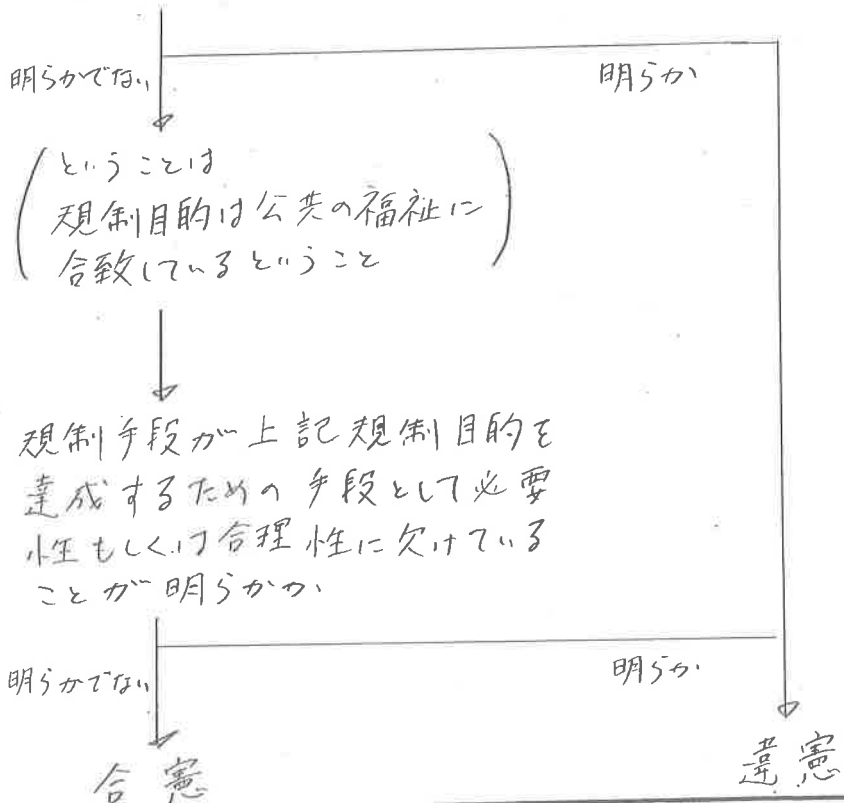 明らかでない
明らか
ということは
規制目的は公共の福祉に
合致しているということ
規制手段が上記規制目的を
達成するための手段として必要
性もしくは合理性に欠けている
ことが明らかか
明らかでない
明らか
合憲
違憲